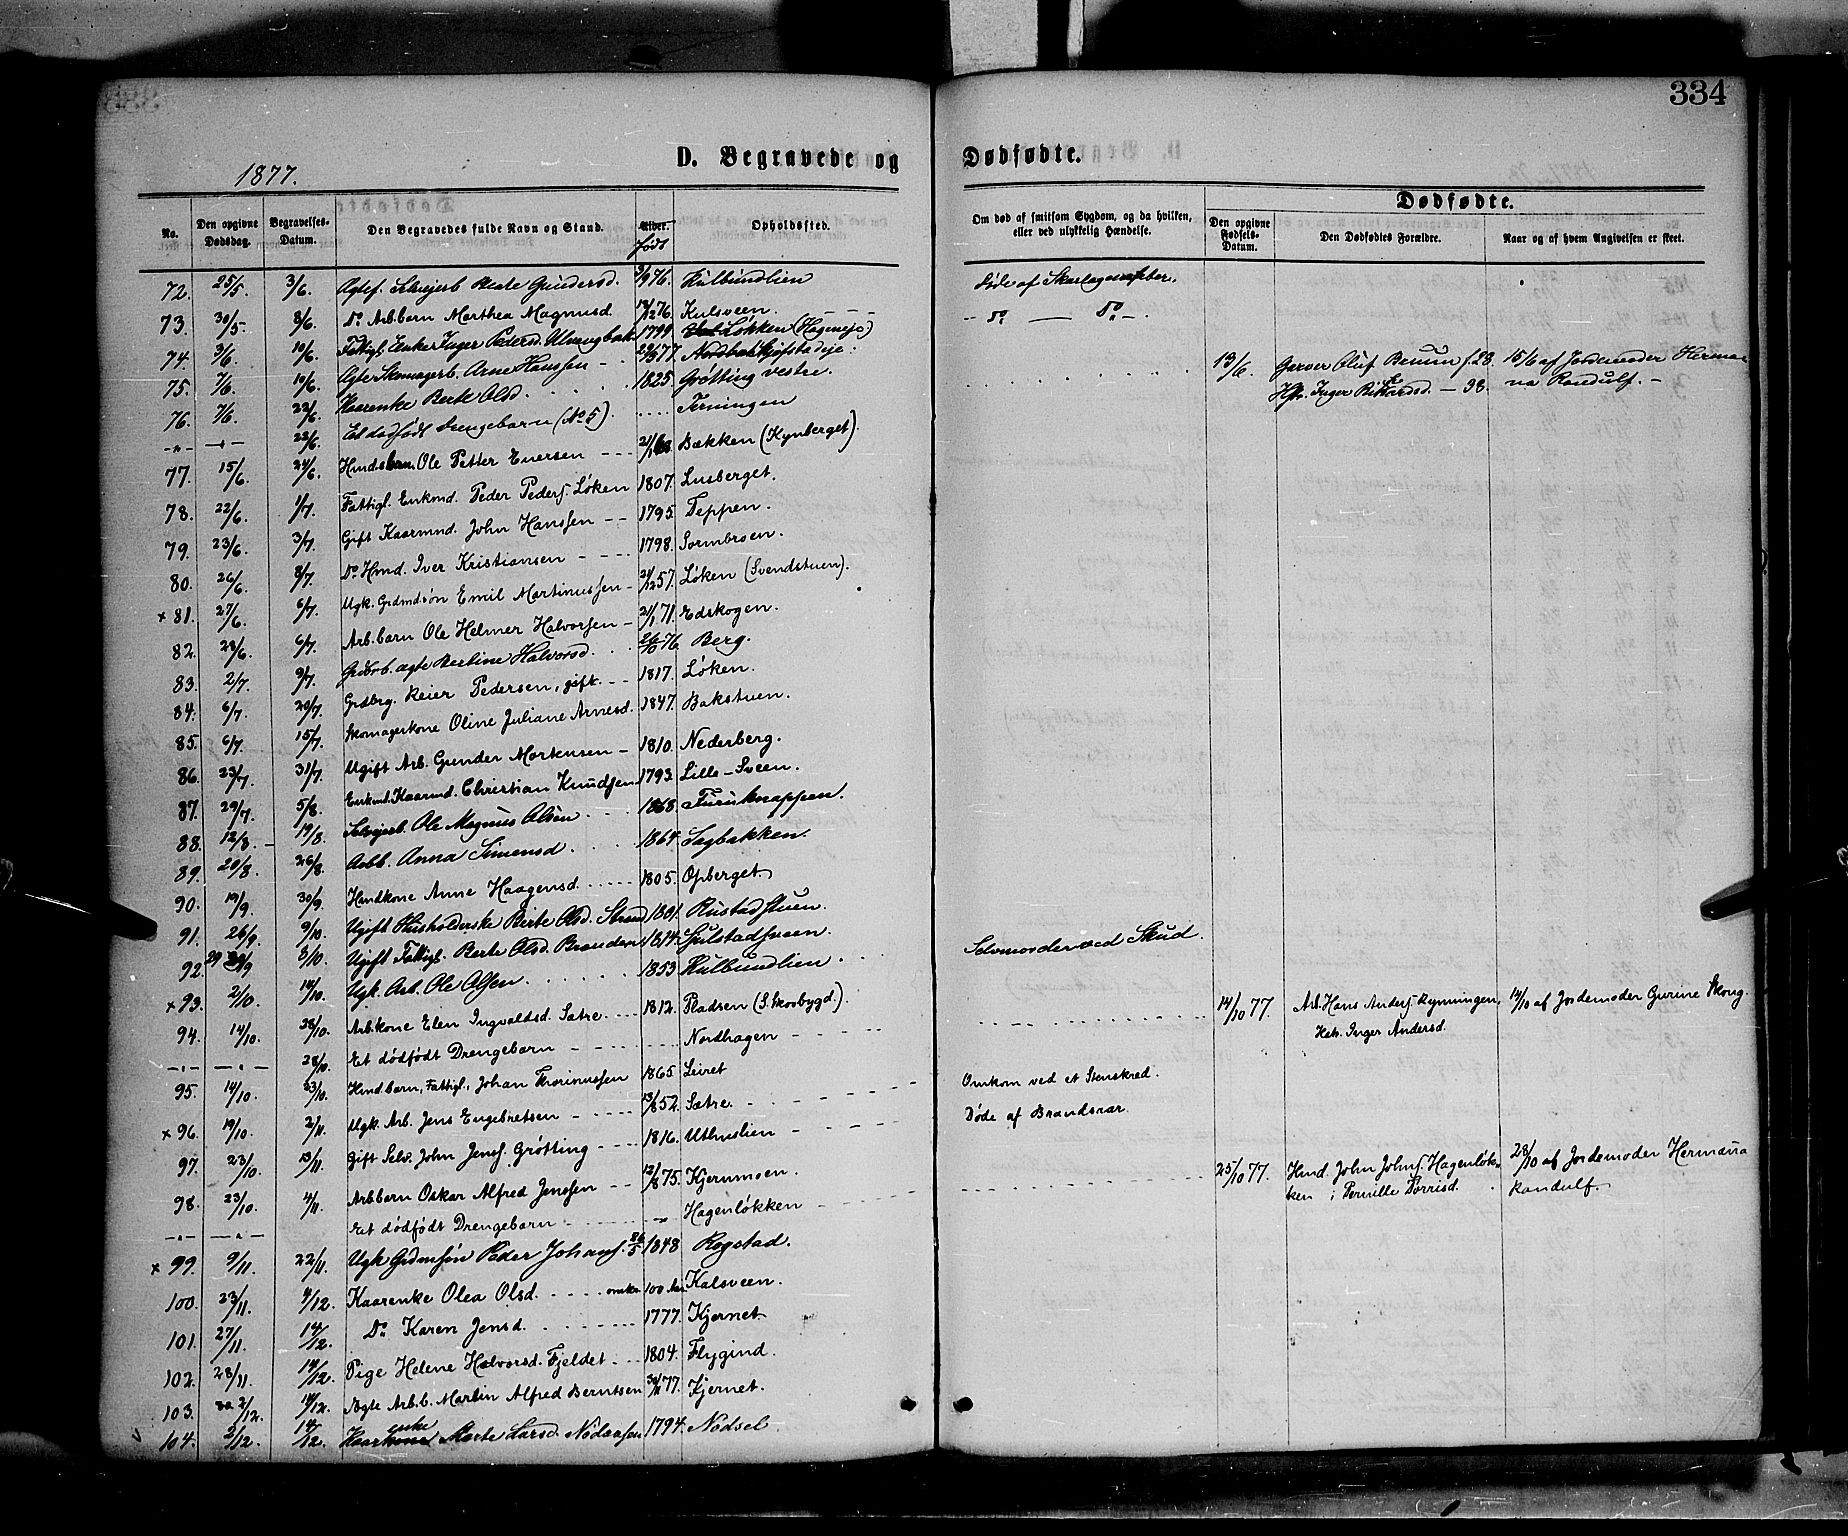 334
D. Begravede og Dødfødte.
1877.
Dødfødte.
No. Den opgivne Dødsdag. Begravelses-Datum. Den Begravedes fulde Navn og Stand. Alder. født Opholdsfted. Om død af smitsom Sygdom, og da hvilken, eller ved ulykkelig Hændelse. Den opgivne Fødsels-Datum. Den Dødfødtes Forældre. Naar og af hvem Angivelsen er skeet.
72. 25/5. 3/6. Selvejerb Berte Gundersd. 76. Kulbundlien Døde af Skarlagensfeber.
73. 30/5. 8/6. Do Arb.barn Marthea Magnusd 76. Kulsveen. Do Do
74. 3/6. 10/6. Fattigl. Enke Inger Pedersd. 1799. Løkken (Hagensejo)
75. 7/6. 10/6. Ægte Skomagerb. Arne Hanssen 77.
76. 7/6. 22/6. Kaarenke Berte Olsd. 1825. Grøtting vestre.
-"- 22/6. Et dødfødt Drengebarn (No 5). Terningen 13/6. Garver Oluf f. 15/6 af Jordemoder Hermana Randulf.
Inger
77. 15/6. 24/6. Ole Petter Enersen Bækken (Kynberget).
78. 22/6. 1/7. Fattigl. Enkmd. Peder Peders. Løken 1807. Lusberget.
79. 23/6. 3/7. Gift Kaarmnd. John Hanssen 1795. Teppen.
80. 26/6. 8/7. Do Hmd. Iver Kristiansen 1798. Sormbroen.
x 81. 27/6. 6/7. Ugk. Grdmdsøn Emil Martinussen 24/12 57. Løken (Svendstuen).
82. 28/6. 6/7. Arb.barn Ole Helmer Halvorsen 21/1 71. Edskogen.
83. 2/7. 9/7. ægte Berline Halvorsd. 76. Berg.
84. 6/7. 20/7. Grdbrg. Reier Pedersen, gift. 1817. Løken.
85. 6/7. 15/7. Skomagerkone Oline Juliane Arnesd. 1847. Bakstuen.
86. 23/7. 31/7. Ugift Arb. Gunder Mortensen 1810. Nederberg.
87. 29/7. 5/8. Enkmd. Kaarmd. Christian Knudsen 1793. Lille-Sveen.
88. 12/8. 19/8. Selvejerb. Ole Magnus Olsen 1868. Furuknappen.
89. 20/8. 26/8. Arbb. Anna Simensd. 1864. Sagbakken.
90. 19/9. 30/9. Handkone Anne Haagensd. 1805. Opberget.
91. 26/9. 9/10. Ugift Husholderske Berte Olsd. Strand 1801. Rustadstuen.
92. 29/9 8/10. Ugift Fattigl. Berte Olsd. Brænden 1814. Julstadsveen.
x 93. 2/10. 14/10. Ugk. Arb. Ole Olsen. 1853 Kulbundlien Selvmorder ved Skud.
94. 14/10. 28/10. Arb.kone Elen Ingvaldsd. Sætre. 1812. Pladsen (S. Skovbygd.).
-"- 28/10. Et dødfødt Drengebarn Nordhagen 14/10 77. Arb. Hans Anders. Kynningen, Inger Andersd. 14/10 af Jordemoder Gurine Skong.
95. 14/10. 23/10. Hmd. barn, Fattigl., Johan Thorinussen 1865 Leiret
x 96. 19/10. 2/11. Ugk. Arb. Jens Engebretsen 13/8 52. Sætre. Omkom ved et Stenskred.
97. 23/10. 13/11. Gift Selv. John Jens. Grøtting 1816. Uthuslien Døde af Brandsaar.
98. 23/10. 4/11. Arb.barn Oskar Alfred Jenssen 12/8 75. Kjernmoen.
-"- Et dødfødt Drengebarn Hagenløkken 25/10 77. Hmd. John Johns. Hagenløkken i Pernille Torrisd. 28/10 af Jordemoder Hermana Randulf.
x 99. 9/11. 22/11. Ugk Grdmsøn Peder Johans. 1848 Rogstad.
100. 23/11. 4/12. Kaarenke Olea Olsd. omkr. 100 Aar Kalsveen.
101. 27/11. 14/12. Do Karen Jensd. 1777. Kjernet
102. 28/11. 14/12. Pige Helene Halvorsd. Fjeldet 1804. Flygind.
103. 2/12. 14/12. Ægte Arb.b. Martin Alfred Berntsen 30/11 77. Kjernet.
104. 2/12. 14/12. Kaarkone enke Marte Larsd. Nodaasen 1794. Nodsel.